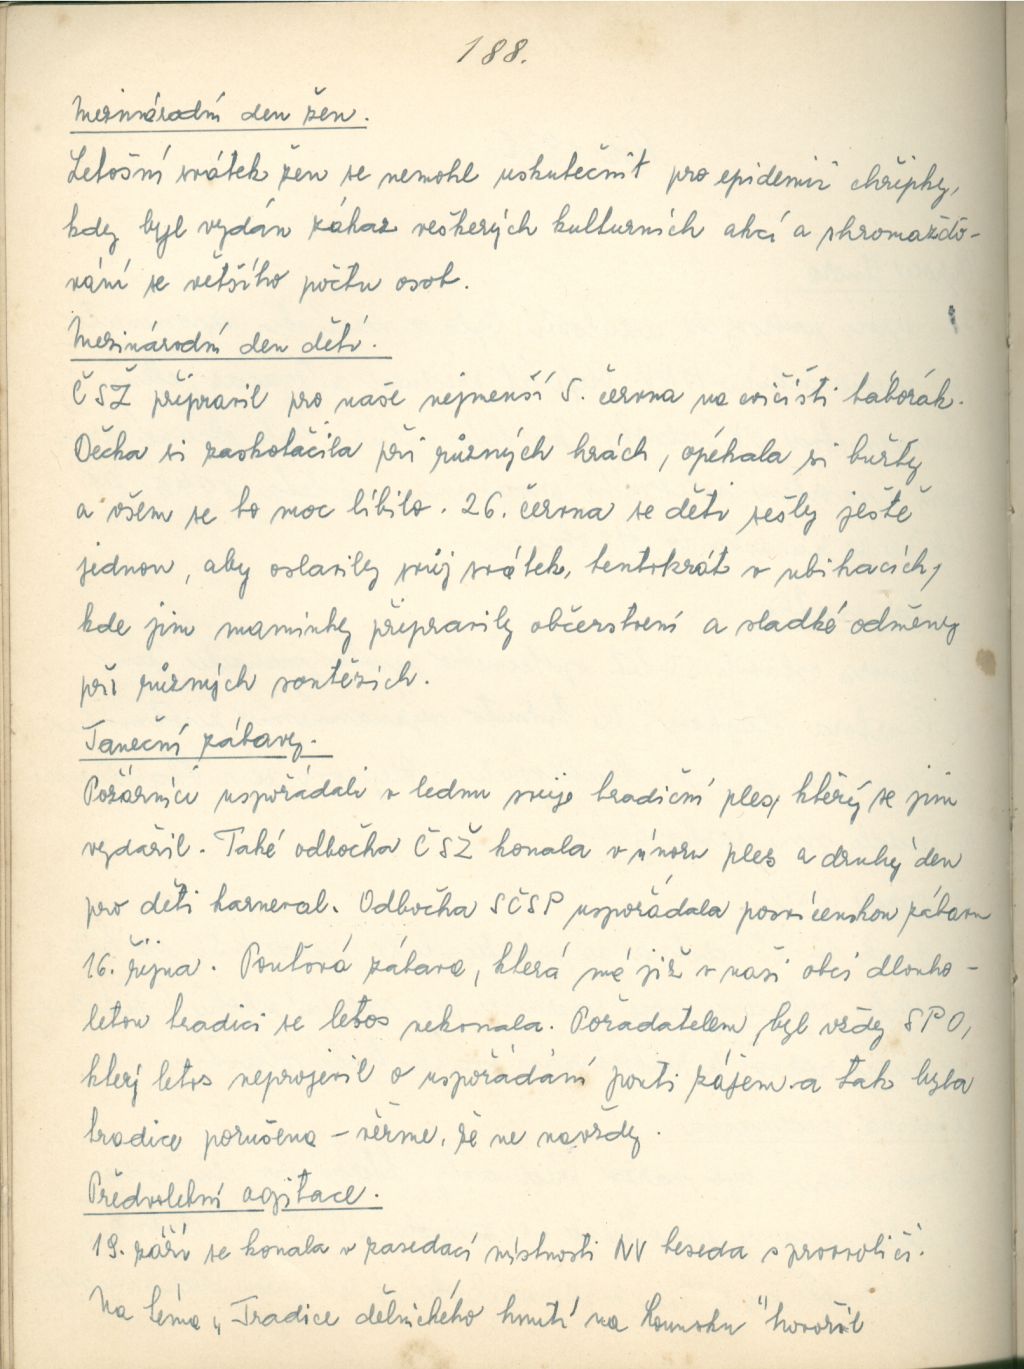 188.
Mezinárodní den žen.
Letošní svátek žen se nemohl uskutečnit pro epidemii chřipky,
kdy byl vydán zákaz veškerých kulturních akcí a shromažďo-
vání se většího počtu osob.
Mezinárodní den dětí.
ČSŽ připravil pro naše nejmenší 5. června na cvičišti táborák.
Děcka si zaskotačila při různých hrách, opékala si buřty
a všem se to moc líbilo. 26. června se děti sešly ještě
jednou, aby oslavily svůj svátek, tentokrát v ubikacích,
kde jim maminky připravily občerstvení a sladké odměny
při různých soutěžích.
Taneční zábavy.
Požárníci uspořádali v lednu svůj tradiční ples, který se jim
vydařil. Také odbočka ČSŽ konala v únoru ples a druhý den
pro děti karneval. Odbočka SČSP uspořádala posvícenskou zábavu
16. října. Pouťová zábava, která má již v naší obci dlouho-
letou tradici se letos nekonala. Pořadatelem byl vždy SPO,
který letos neprojevil o uspořádání pouti zájem a tak byla
tradice porušena – věřme, že ne navždy.
Předvolební agitace.
19. září se konala v zasedací místnosti NV beseda s prvovoliči.
Na téma „Tradice dělnického hnutí na Kounsku" hovořil